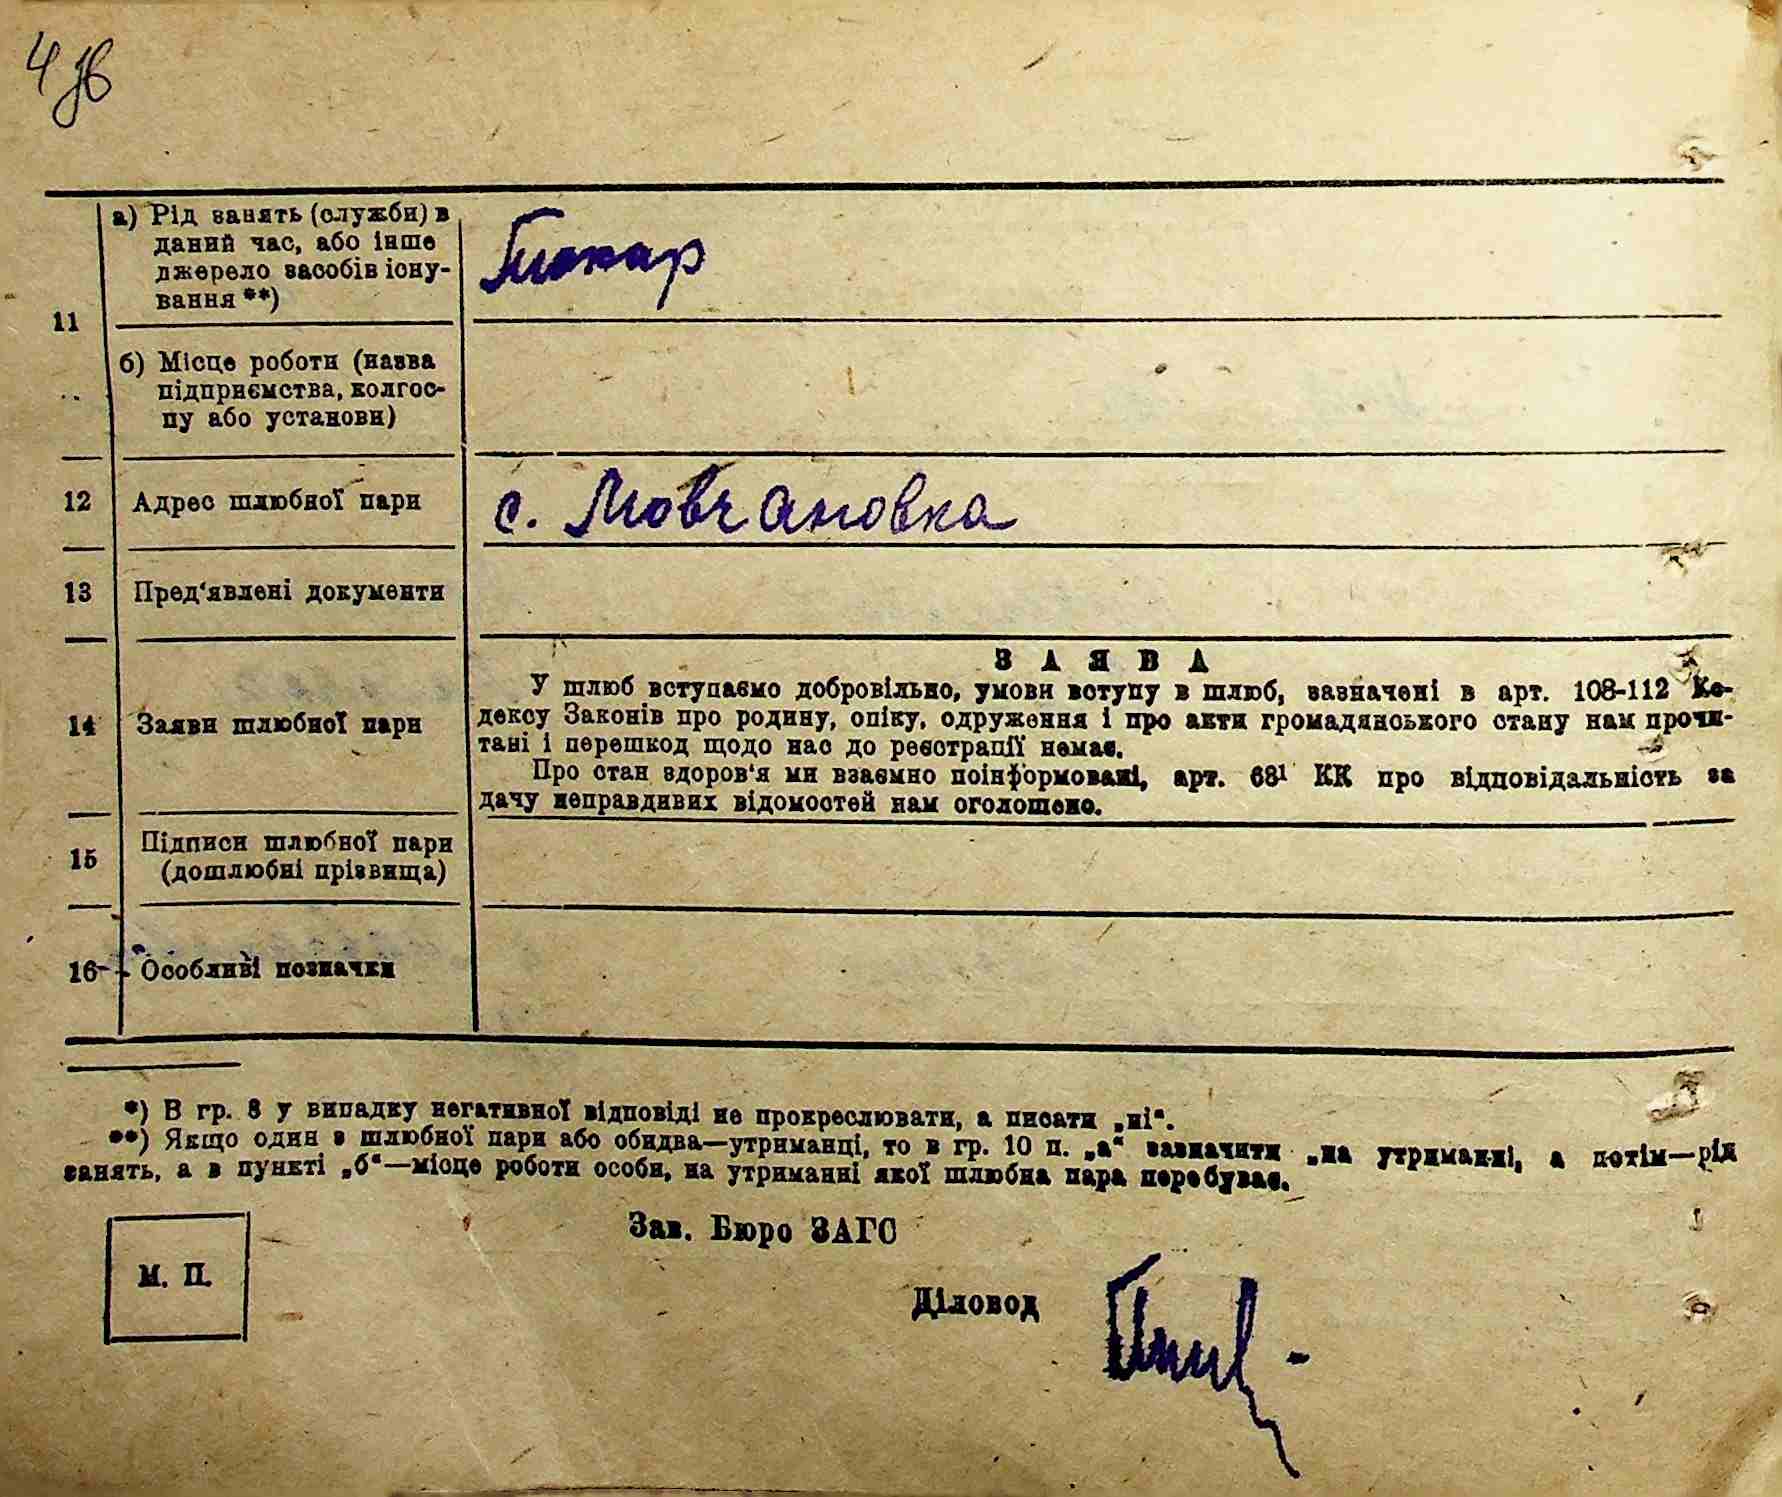 4 зв
а) Рід занять (служби) в
даний час, або інше
джерело засобів існу-
вання **)
11
б) Місце роботи (назва
підприємства, колгос-
пу або установи)
12 Адрес шлюбної пари с. Мовчановка
13 Пред‘явлені документи
ЗАЯВА
У шлюб вступаємо добровільно, умови вступу в шлюб, зазначені в арт. 108-112 Ко-
дексу Законів про родину, опіку, одруження і про акти громадянського стану нам прочи-
тані і перешкод щодо нас до реєстрації немає.
Про стан здоров‘я ми взаємно поінформовані, арт. 68¹ КК про відповідальність за
дачу неправдивих відомостей нам оголошено.
14 Заяви шлюбної пари
15 Підписи шлюбної пари
(дошлюбні прізвища)
16 Особливі позначки
*) В гр. 8 у випадку негативної відповіді не прокреслювати, а писати „ні“.
**) Якщо один з шлюбної пари або обидва—утриманці, то в гр. 10 п. „а“ зазначити „на утриманні, а потім—рід
занять, а в пункті „б“—місце роботи особи, на утриманні якої шлюбна пара перебуває.
Зав. Бюро ЗАГС
М. П.
Діловод